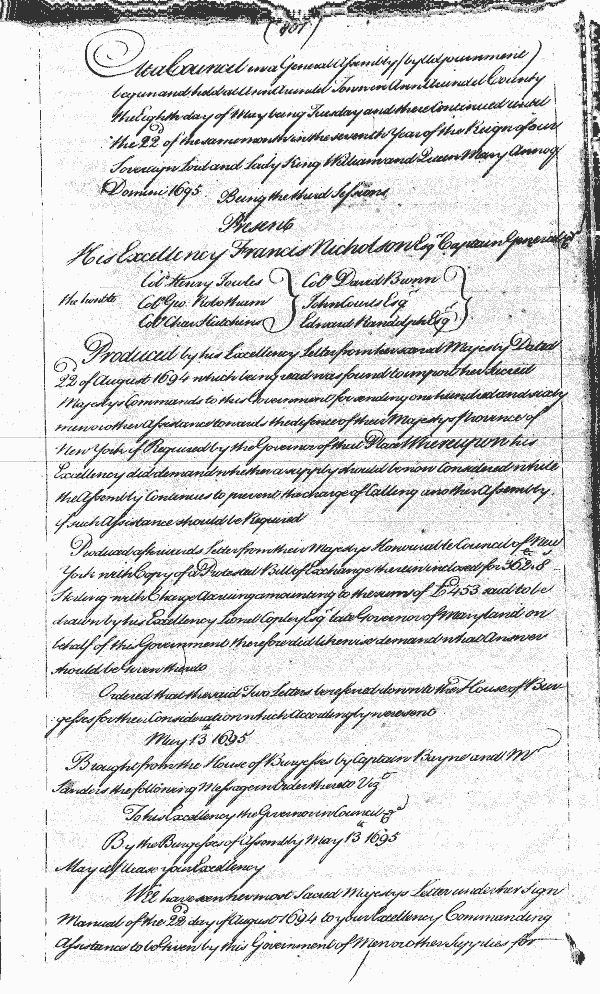 At a Council in a General Assembly (by Adjournment)
begun and held at Ann Arundel Town in Ann Arundel County
the Eighth day of May being Tuesday and there Continued until
the 22d of the same month in the seventh Year of the Reign of our
Sovereign Lord and Lady King William and Queen Mary Annoq
Domini 1695. Being the third Sessions
Present
His Excellency Francis Nicholson Esqr Captain General &c
Col. Henry Jowles Col. David Brown
the honble Col. Geo. Robotham John Courts Esqr
Col. Chas Hutchins Edward Randolph Esqr
Produced by his Excellency Letter from her sacred Majesty Dated
22d of August 1694 which being read was found to import her Sacred
Majestys Commands to this Government for sending one hundred and sixty
men or other Assistance towards the defence of their Majestys Province of
New York if Required by the Governor of that Place Whereupon his
Excellency did demand whether a supply should be now Considered while
the Assembly Continues to prevent the charge of Calling another Assembly.
if such Assistance should be Required
Produced afterwards Letter from their Majestys Honourable Council of New
York with Copy of a Protested Bill of Exchange therein inclosed for 362.. 8
Sterling with Charge Accruing amounting to the sum of £453 said to be
drawn by his Excellency Lionel Copley Esqr late Governor of Maryland on
behalf of this Government therefore did likewise demand what Answer
should be Given thereto
Ordered that the said Two Letters be referred down to the House of Bur
gesses for their Consideration which Accordingly were sent
May 13th 1695
Brought from the House of Burgesses by Captain Bayne and Mr
Sanders the following Message in Order thereto Vizt
To his Excellency the Governor in Council &c
By the Burgesses of Assembly May 13th 1695
May it please your Excellency
Wee have seen her most Sacred Majestys Letter under her Sign
Manual of the 22d day of August 1694 to your Excellency Commanding
Assistance to be Given by this Government of Men or other Supplies for